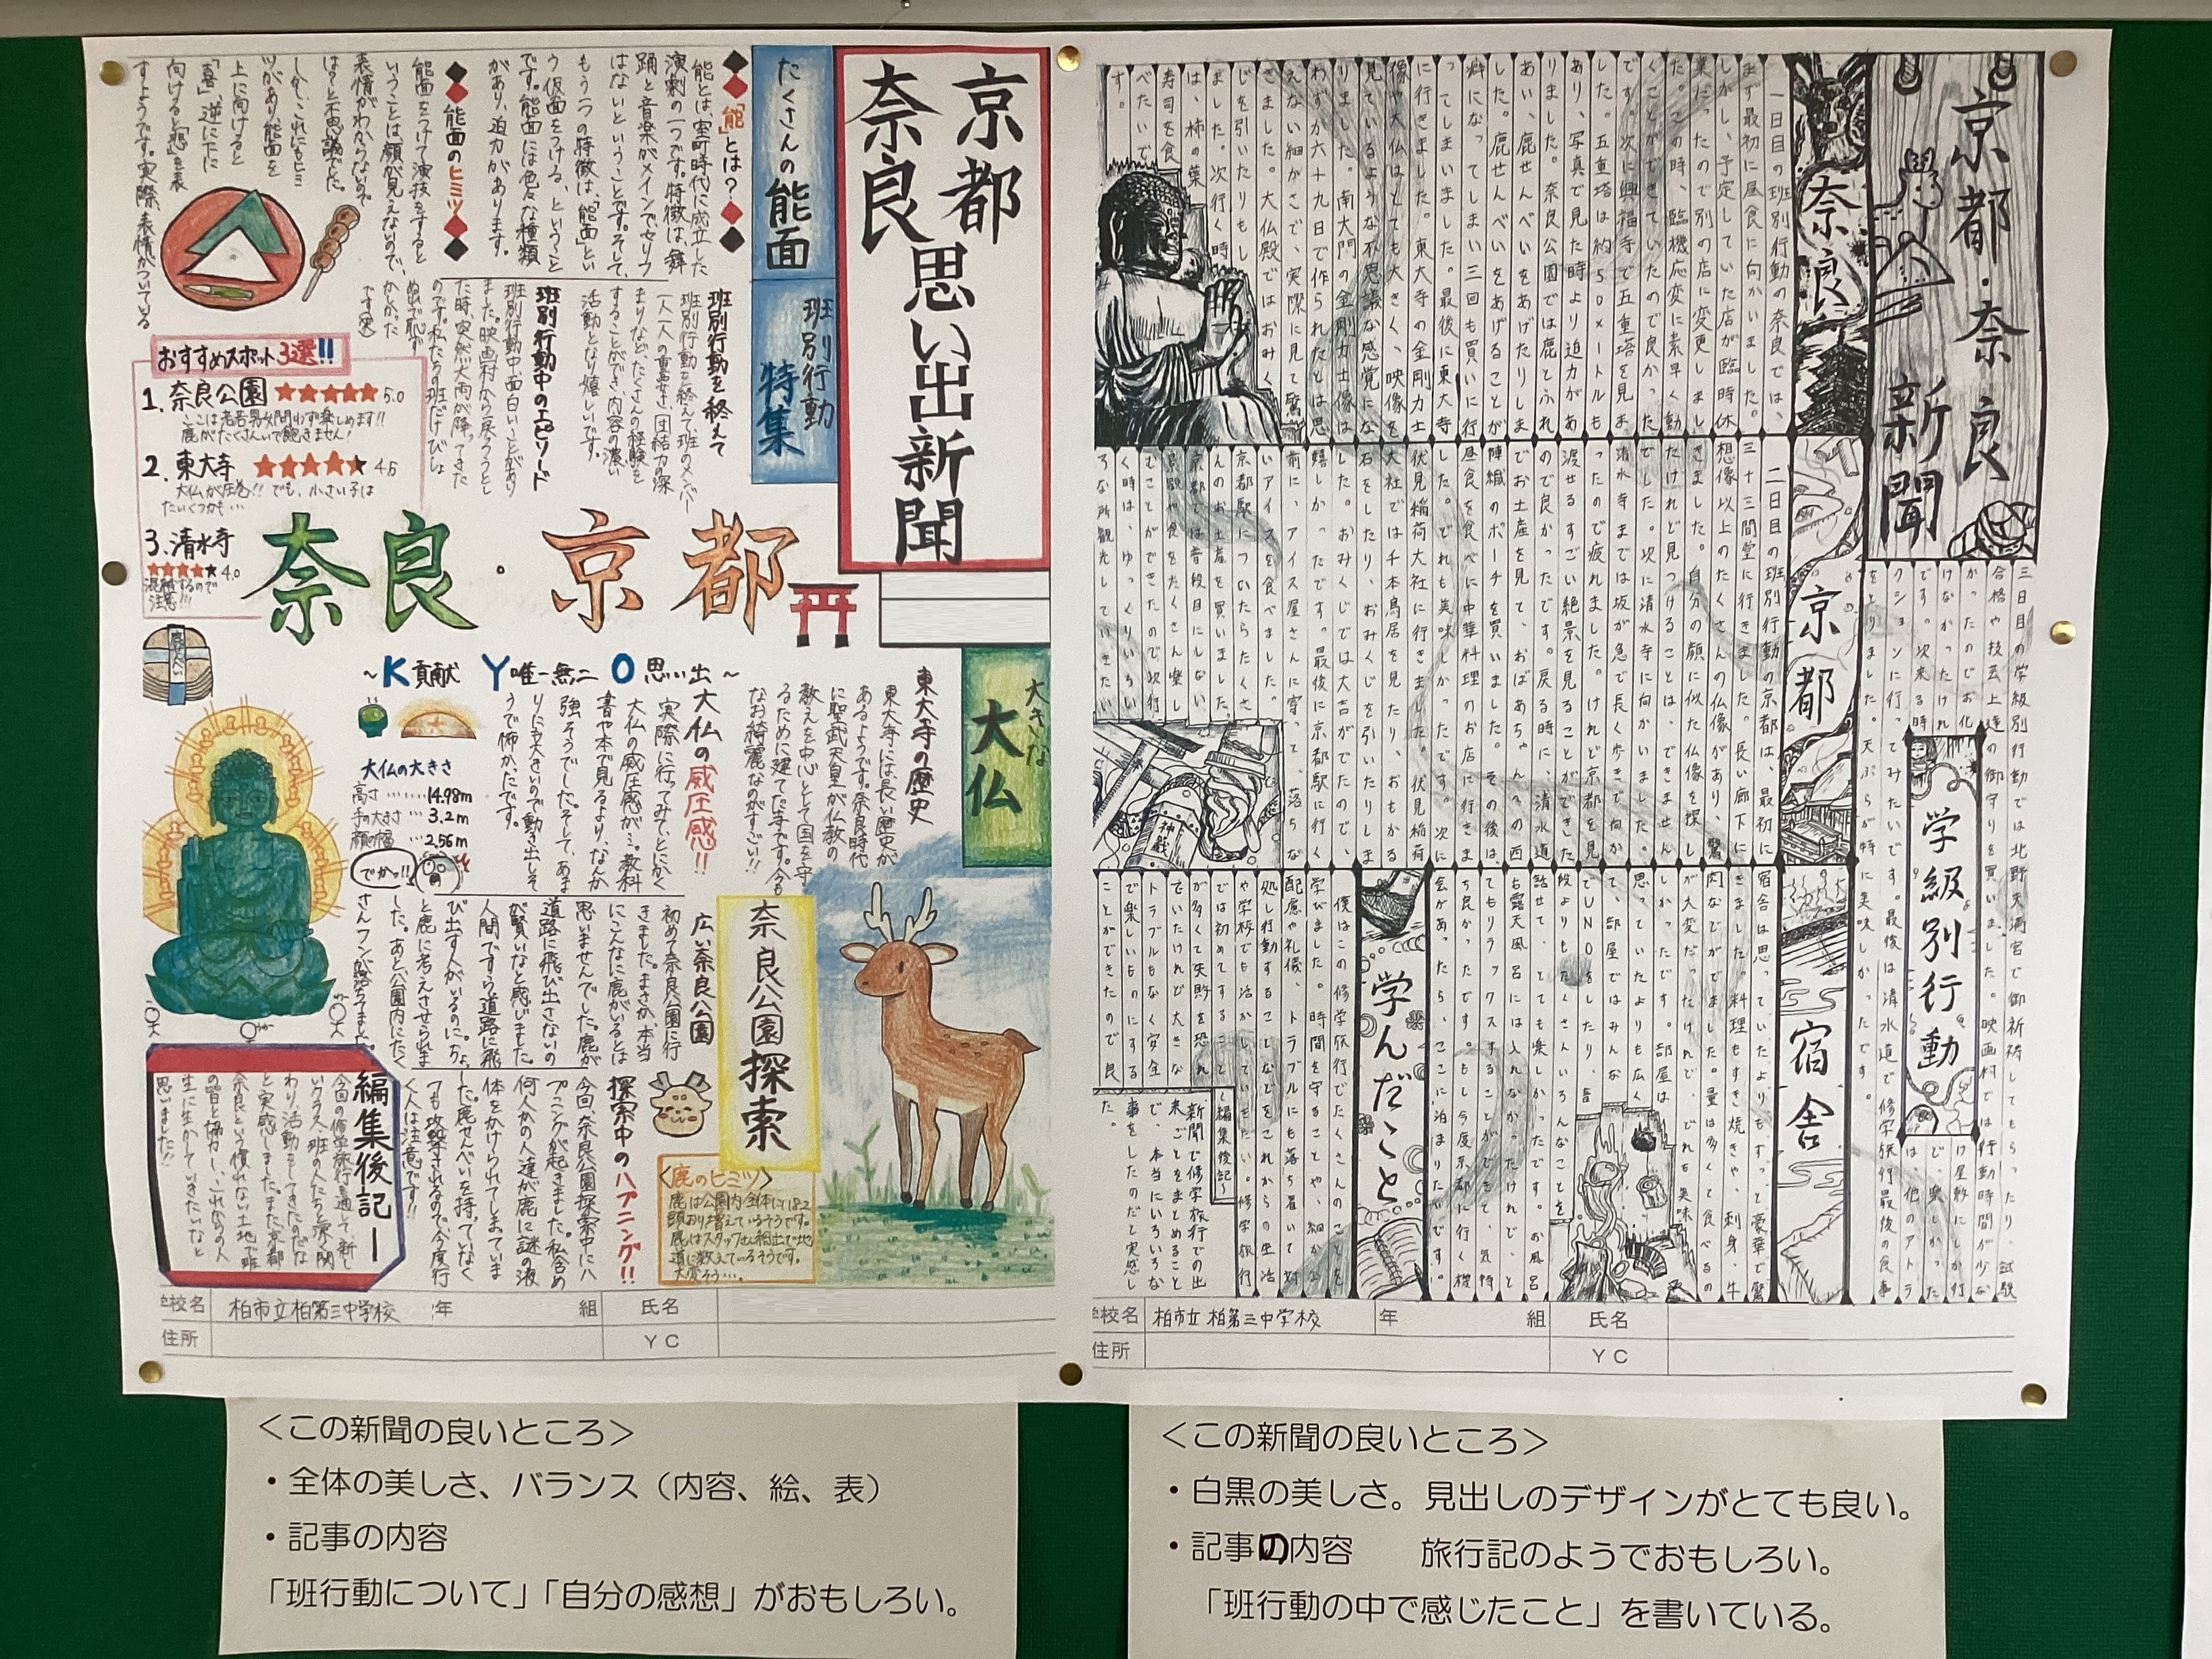 京都
奈良
思い出新聞
たくさんの能面
◆◆「能」とは？◆◆
能とは、室町時代に成立した
演劇の一つです。特徴は、舞
踊と音楽がメインでセリフ
はないということです。そして、
もう一つの特徴は、「能面」とい
う仮面をつける、ということ
です。能面には色々な種類
があり、迫力があります。
◆◆能面のヒミツ◆◆
能面をつけて演技をすると
いうことは顔が見えないので、
表情がわからないので
は？と不思議でした。
しかし、これにもヒミ
ツがあり、能面を
上に向けると
「喜」逆に下に
向けると「怒」を表
すようです。実際、表情がついている
班別行動
特集
班別行動を終えて
班別行動を終えて、班のメンバー
一人一人の重要さ、団結力の深
まりなど、たくさんの経験を
することができ、内容の濃い
活動となり嬉しいです。
班別行動中のエピソード
班別行動中、面白いことがあり
ました。映画村から戻ろうとし
た時、突然大雨が降ってきた
のです。私たちの班だけびしょ
ぬれで恥ず
かしかった
です(笑)
おすすめスポット3選!!
1.奈良公園 ★★★★★ 5.0
ここは老若男女問わず楽しめます!!
鹿がたくさんいて飽きません!
2.東大寺 ★★★★★ 4.5
大仏が圧巻!! でも、小さい子は
たいくつかも…
3.清水寺
★★★★★ 4.0
混雑するので
注意!!!
奈良・京都
～K貢献 Y唯一無二 O思い出～
大きな
大仏
東大寺の歴史
東大寺には長い歴史が
あるようです。奈良時代
に聖武天皇が仏教の
教えを中心として国を守
るために建てた寺です。今も
なお綺麗なのがすごい!!
大仏の威圧感!!
実際に行ってみて、とにかく
大仏の威圧感が…。教科
書や本で見るより、なんか
強そうでした。そして、あま
りにも大きいので動き出しそ
うで怖かったです。
大仏の大きさ
高さ……14.98m
手の大きさ…3.2m
顔の幅……2.56m
でかっ!!
奈良公園探索
広い奈良公園
初めて奈良公園に行
きました。まさか、本当
にこんなに鹿がいるとは
思いませんでした。鹿が
道路に飛び出さないの
が賢いなと感じました。
人間ですら、道路に飛
び出す人がいるのに。ちょっ
と鹿に考えさせられま
した。あと、公園内にたく
さんフンが落ちてました。
探索中のハプニング!!
今回、奈良公園探索中にハ
プニングが起きました。私含め
何人かの人達が鹿に謎の液
体をかけられてしまいまし
た。鹿せんべいを持っていなく
ても攻撃されるので、今度行
く人は注意です!!
〈鹿のヒミツ〉
鹿は公園内全体に1182
頭おり増えているそうです。
鹿はスタッフさん総出で地
道に数えているそうです。
大変そう…。
編集後記
今回の修学旅行を通して、新し
いクラス、班の人たちと深く関
わり活動をしてきたのだな
と実感しました。また京都
奈良という慣れない土地で班
の皆と協力し、これからの人
生に生かしていきたいなと
思いました!!
学校名 柏市立柏第三中学校 年 組 氏名
住所 YC
京都・奈良
新聞
三日目の学級別行動では北野天満宮で御祈祷してもらったり、試験
合格や技芸上達の御守りを買いました。映画村では行動時間が少な
奈良
一日目の班別行動の奈良では、
まず最初に昼食に向かいました。
しかし、予定していた店が臨時休
業だったので別の店に変更しまし
た。この時、臨機応変に素早く動
くことができていたので良かった
です。次に興福寺で五重塔を見ま
した。五重塔は約50メートルも
あり、写真で見た時より迫力があ
りました。奈良公園では鹿とふれ
あい、鹿せんべいをあげたりしま
した。鹿せんべいをあげることが
癖になってしまい三回も買いに行
ってしまいました。最後に東大寺
に行きました。東大寺の金剛力士
像や大仏はとても大きく、映像を
見ているような不思議な感覚にな
りました。南大門の金剛力士像は
わずか六十九日で作られたとは思
えない細かさで、実際に見て驚
きました。大仏殿ではおみく
じを引いたりもし
ました。次行く時
は、柿の葉
寿司を食
べたいで
す。
京都
二日目の班別行動の京都は、最初に
三十三間堂に行きました。長い廊下に
想像以上のたくさんの仏像があり、驚
きました。自分の顔に似た仏像を探し
たけれど見つけることは、できません
でした。次に清水寺に向かいました。
清水寺までは坂が急で長く歩きで向か
ったので疲れました。けれど京都を見
渡せるすごい絶景を見ることができた
ので良かったです。戻る時に、清水道
でお土産を見て、おばあちゃんへの西
陣織のポーチを買いました。その後は
昼食を食べに中華料理のお店に行きま
した。どれも美味しかったです。次に
伏見稲荷大社に行きました。伏見稲荷
大社では千本鳥居を見たり、おもかる
石をしたり、おみくじを引いたりしま
した。おみくじでは大吉がでたので、
嬉しかったです。最後に京都駅に行く
前に、アイス屋さんに寄って、落ちな
いアイスを食べました。
京都駅についたらたくさ
んのお土産を買いました。
京都では普段目にしない
むことができたので次行
く時は、ゆっくりいろい
ろな所観光していきたい
神戯
学級別行動
宿舎
宿舎は思っていたよりも、ずっと豪華で驚
きました。料理もすき焼きや、刺身、牛
肉などがでました。量は多くて食べるの
が大変だったけれど、どれも美味
しかったです。部屋は
思っていたよりも広く
て、部屋ではみんな
でUNOをしたり、普
段よりもたくさんいろんなことを
話せて、とても楽しかったです。お風呂
も露天風呂には入れなかったけれど、と
てもリラックスすることができて、気持
ち良かったです。もし今度京都に行く機
会があったら、ここに泊まりたいです。
学んだこと
僕はこの修学旅行でたくさんのことを
学びました。時間を守ることや、細かな
配慮や礼儀、トラブルにも落ち着いて対
処し行動することなどをこれからの生活
や学校でも活かしていきたい。修学旅行
では初めてすること
が多くて失敗を恐れ
ていたけれど大きな
トラブルもなく安全
で楽しいものにする
ことができたので良
～編集後記～
新聞で修学旅行での出
来ごとをまとめること
で、本当にいろいろな
事をしたのだと実感し
た。
学校名 柏市立柏第三中学校 年 組 氏名
住所 YC
＜この新聞の良いところ＞
・全体の美しさ、バランス（内容、絵、表）
・記事の内容
「班行動について」「自分の感想」がおもしろい。
＜この新聞の良いところ＞
・白黒の美しさ。見出しのデザインがとても良い。
・記事の内容　旅行記のようでおもしろい。
「班行動の中で感じたこと」を書いている。